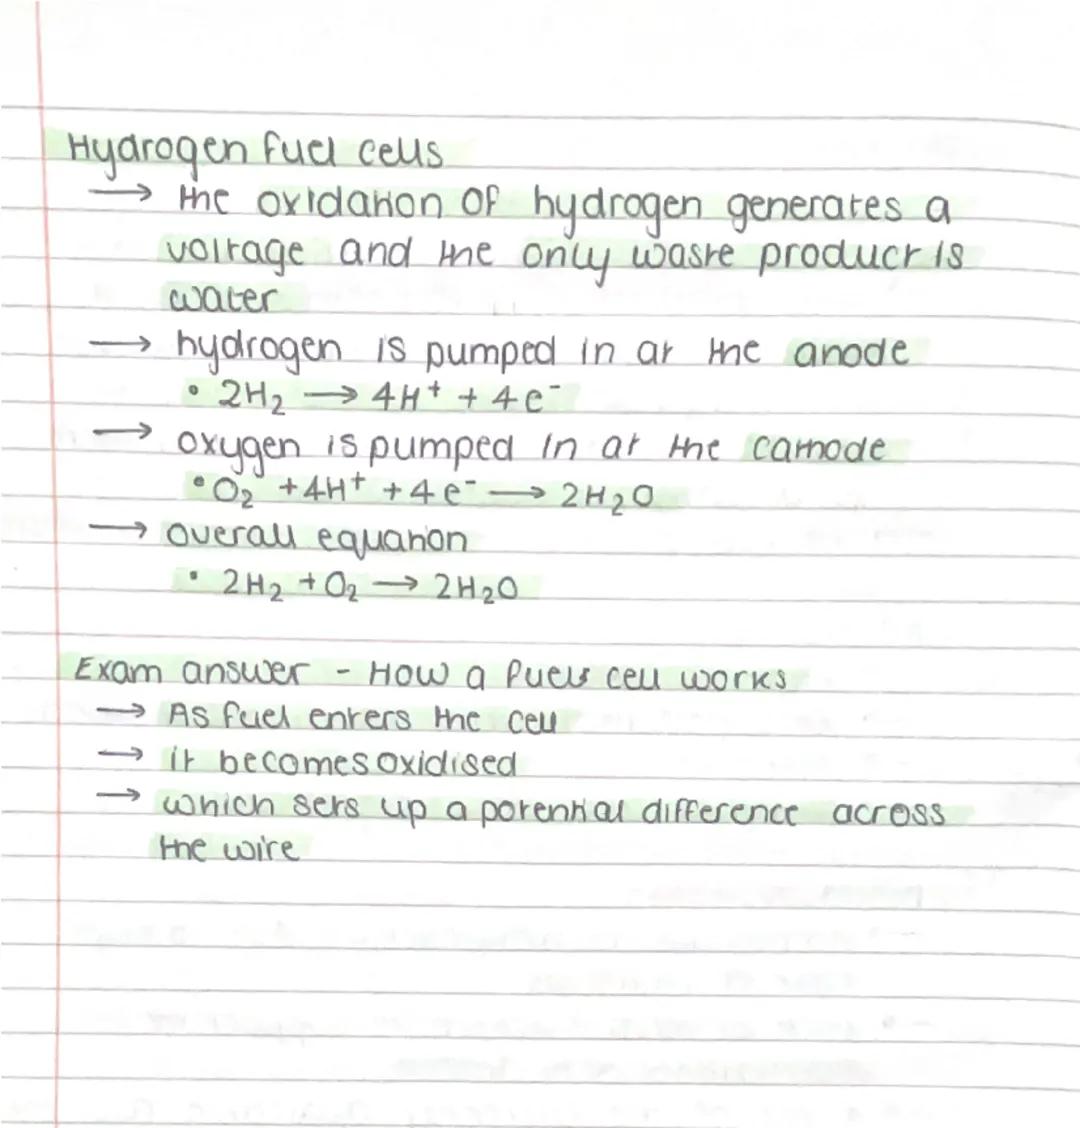 Hydrogen fuel cells
→ the oxidation of hydrogen generates a
voltage and the only waste product is
water
→ hydrogen is pumped in at the anode
• 2H₂ → 4H⁺ + 4e⁻
→ oxygen is pumped in at the cathode
• O₂ + 4H⁺ + 4e⁻ → 2H₂O
→ overall equation
• 2H₂ + O₂ → 2H₂O
Exam answer - How a fuels cell works
→ As fuel enters the cell
→ it becomes oxidised
→ which sets up a potential difference across
the wire